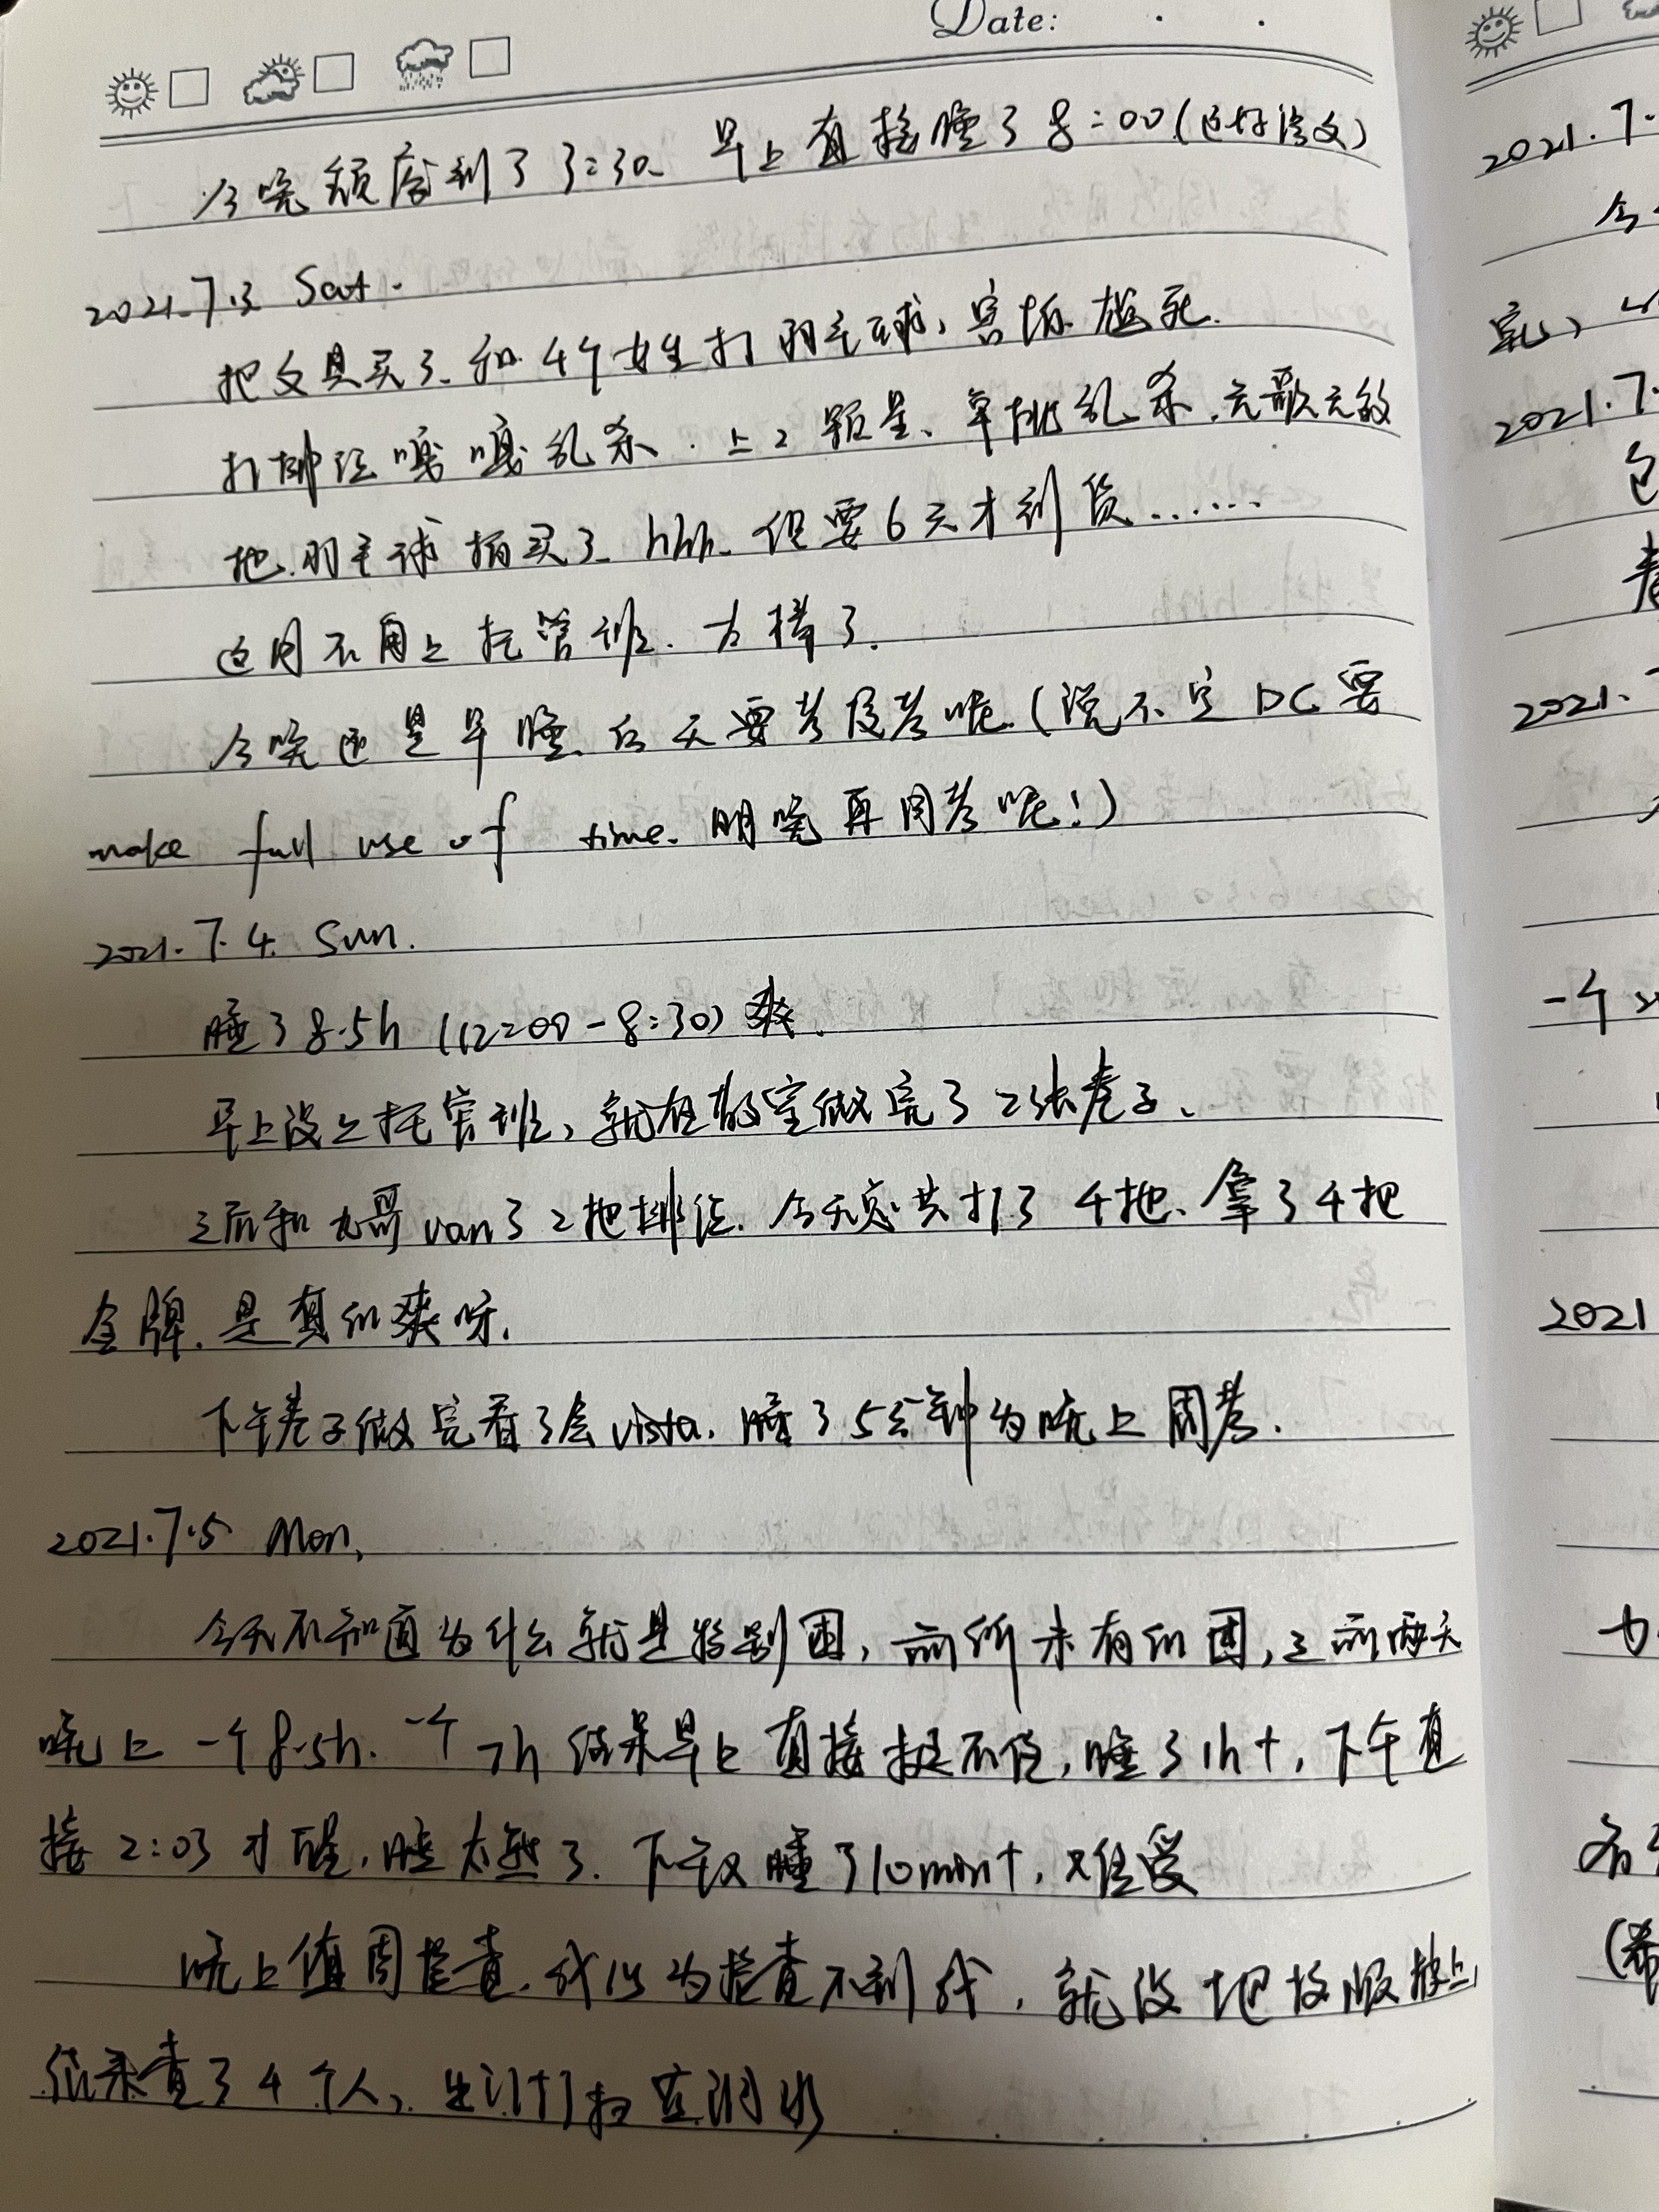 Date:
今晚颓废到了3:30、早上直接睡了8:00(还好语文)
2021.7.3 Sat.
把文具买了、和4个女生打羽毛球，害怕尴死.
打排位嘎嘎乱杀.上2颗星、单挑乱杀.无敌无敌
把羽毛球拍买了、hhh、但要6天才到货……
这周不用上托管班.太棒了.
今晚还是早睡、后天要考段考呢(说不定DC要
make full use of time.明晚再周考呢!)
2021.7.4. Sun.
睡了8.5h (12:00-8:30)爽.
早上没上托管班，就在教室做完了2张卷子、
之后和 哥van了2把排位.今天总共打了4把、拿了4把
金牌.是真的爽呀.
下午卷子做完看了会vista.睡了5分钟为晚上周考.
2021.7.5 Mon.
今天不知道为什么就是特别困，前所未有的困，之前两天
晚上一个8.5h.一个7h结果早上直接挺不住，睡了1h+，下午直
接2:03才醒.睡太熟了.下午又睡了10min+,
晚上值周检查.我以为检查不到我，就没把校服带上
结果查了4个人，
2021.7.
今
完，
2021.7.
包
2021.
一个
2021